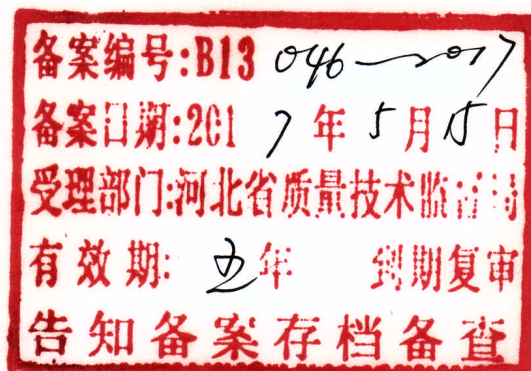 备案编号:B13 046—2017
备案日期:2017年5月15日
受理部门:河北省质量技术监督局
有效期:五年 到期复审
告知备案存档备查